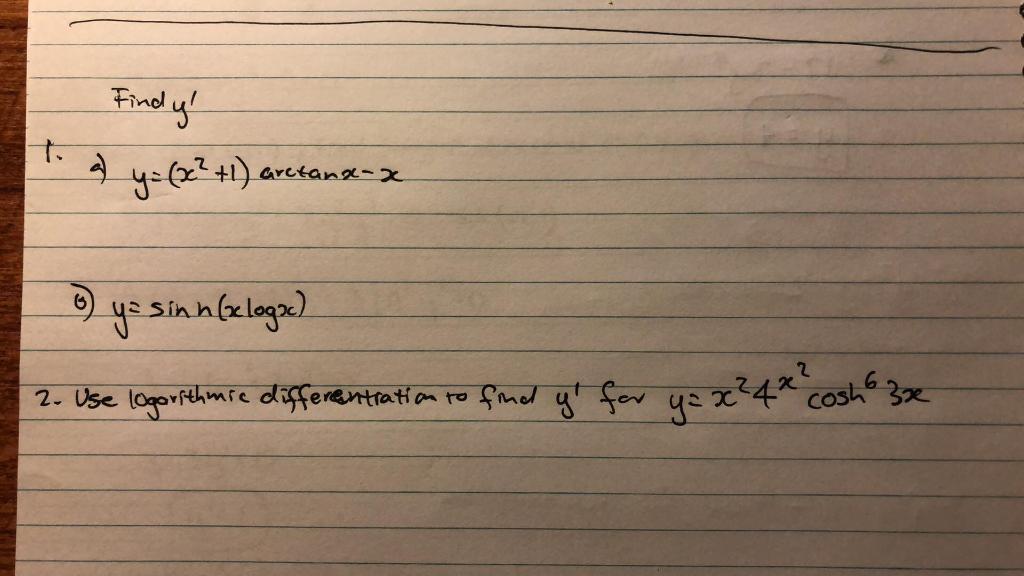 Find y'
1. a) y=(x²+1) arctanx-x
b) y= sinh(xlogx)
2. Use logorithmic differentration to find y' for y= x²4^x² cosh⁶3x